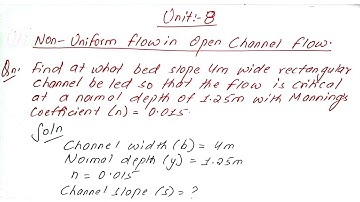 Unit:- 8
Non-Uniform flow in Open Channel Flow.
Qn. Find at what bed slope 4m wide rectangular
channel be led so that the flow is critical
at a normal depth of 1.25m with Manning's
coefficient (n) = 0.015.
Soln
Channel width (b) = 4m
Normal depth (y) = 1.25m
n = 0.015
Channel slope (s) = ?